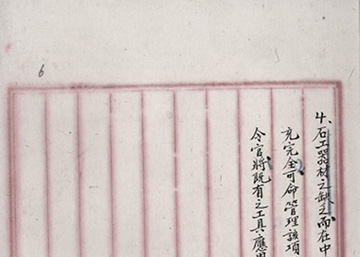 6
4、石工器材之缺乏而在中
充完全可命管理該項
令官將既有之工具應用